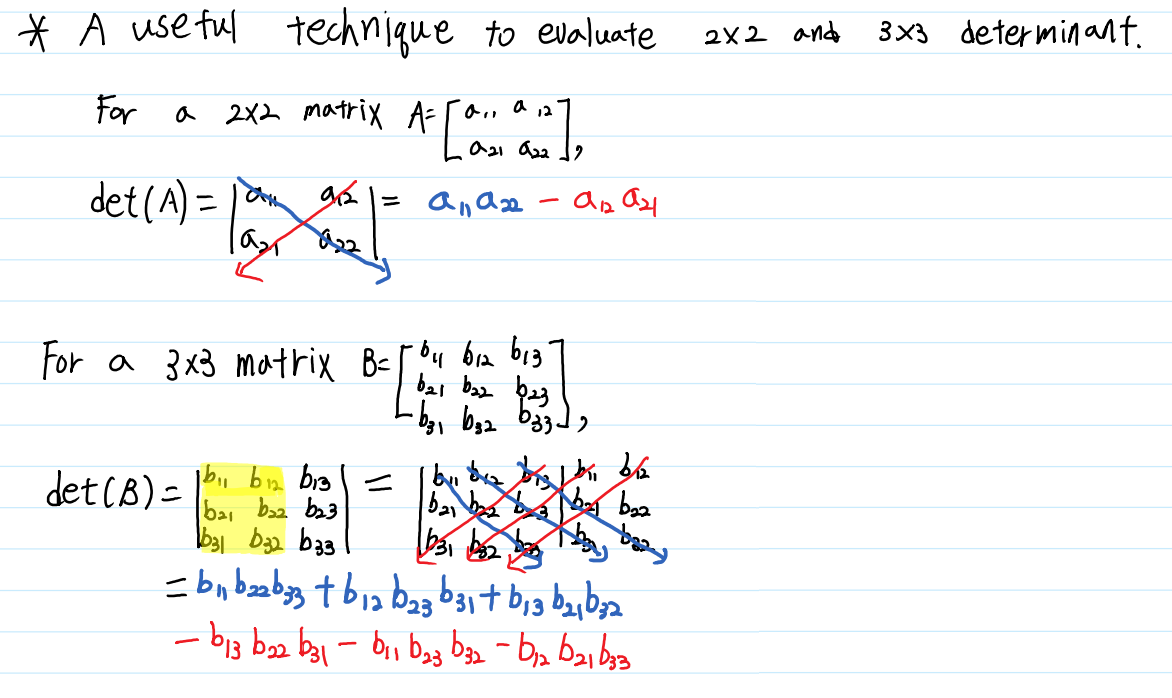 * A useful technique to evaluate 2x2 and 3x3 determinant.
For a 2x2 matrix A= [a₁₁ a₁₂
a₂₁ a₂₂],
det(A) = |a₁₁ a₁₂
a₂₁ a₂₂| = a₁₁a₂₂ - a₁₂a₂₁
For a 3x3 matrix B= [b₁₁ b₁₂ b₁₃
b₂₁ b₂₂ b₂₃
b₃₁ b₃₂ b₃₃],
det(B) = |b₁₁ b₁₂ b₁₃| = |b₁₁ b₁₂ b₁₃| b₁₁ b₁₂
b₂₁ b₂₂ b₂₃ b₂₁ b₂₂ b₂₃ b₂₁ b₂₂
b₃₁ b₃₂ b₃₃ b₃₁ b₃₂ b₃₃ b₃₁ b₃₂
= b₁₁b₂₂b₃₃ + b₁₂b₂₃b₃₁ + b₁₃b₂₁b₃₂
- b₁₃b₂₂b₃₁ - b₁₁b₂₃b₃₂ - b₁₂b₂₁b₃₃